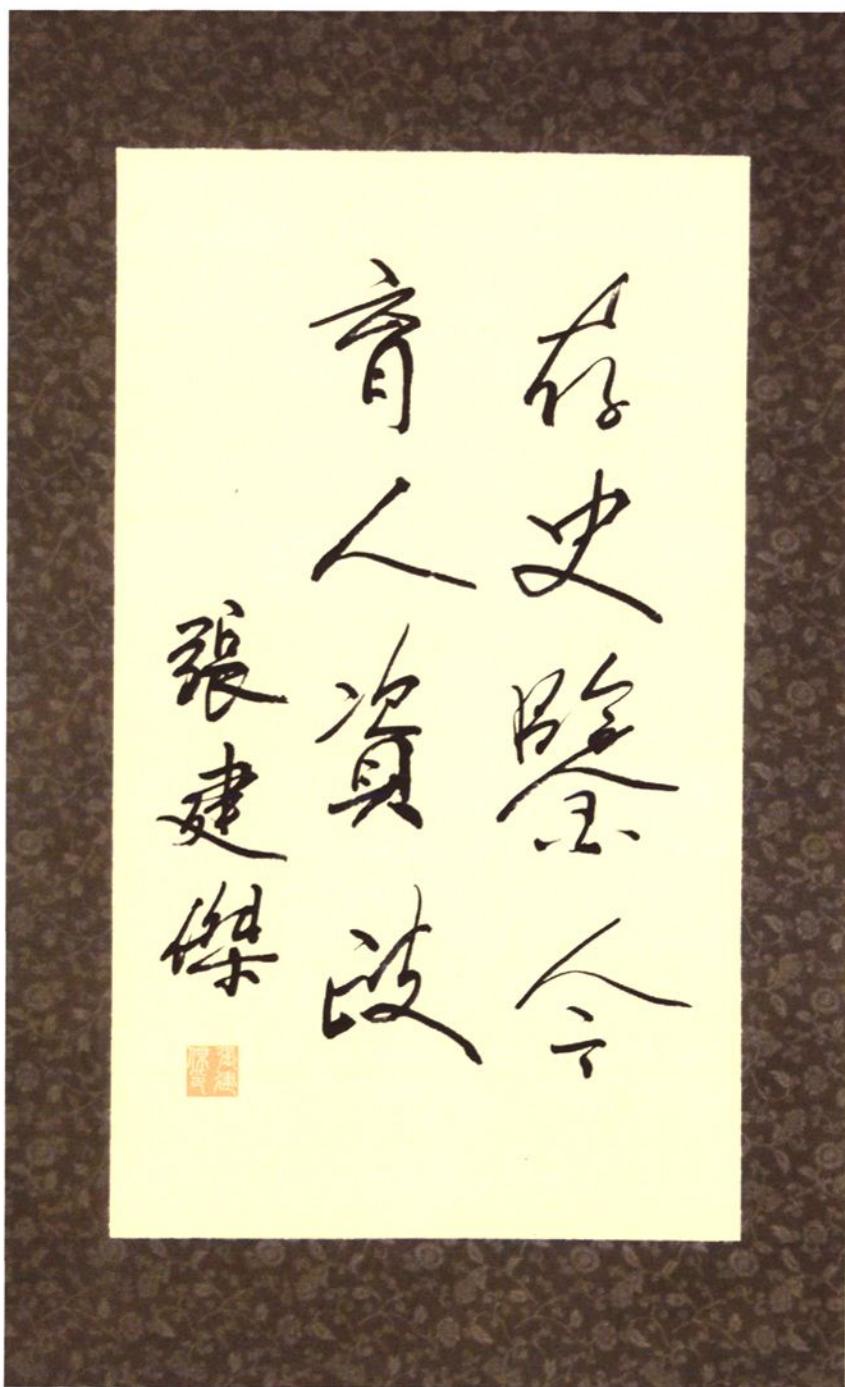 存史鑒今
育人資政
張建傑